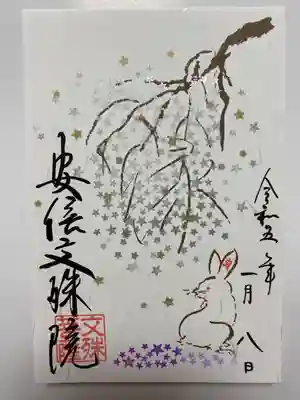 令和五年
一月八日
安倍文殊院
文殊